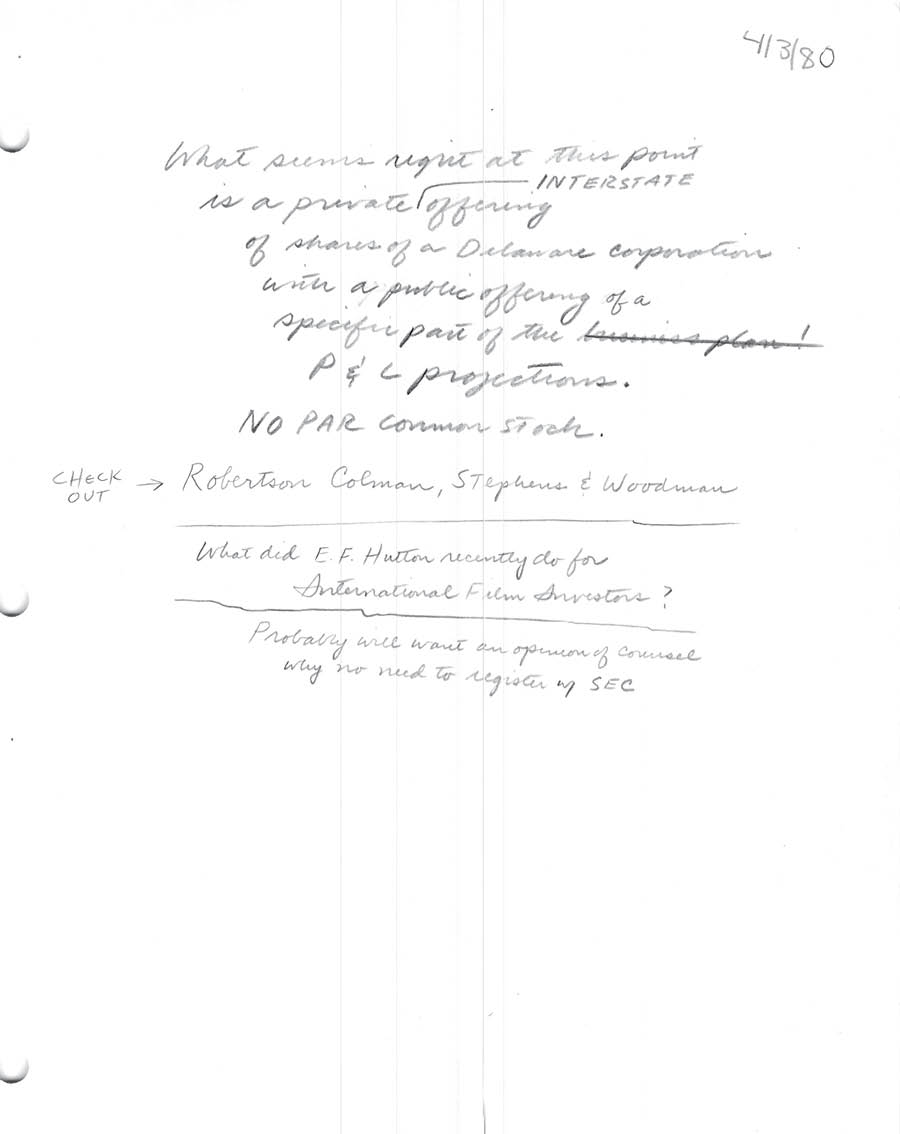 4/3/80
What seems right at this point
INTERSTATE
is a private offering
of shares of a Delaware corporation
with a public offering of a
specific part of the business plan!
P & L projections.
NO PAR common stock.
CHECK OUT → Robertson Colman, Stephens & Woodman
What did E.F. Hutton recently do for
International Film Investors?
Probably will want an opinion of counsel
why no need to register w/ SEC